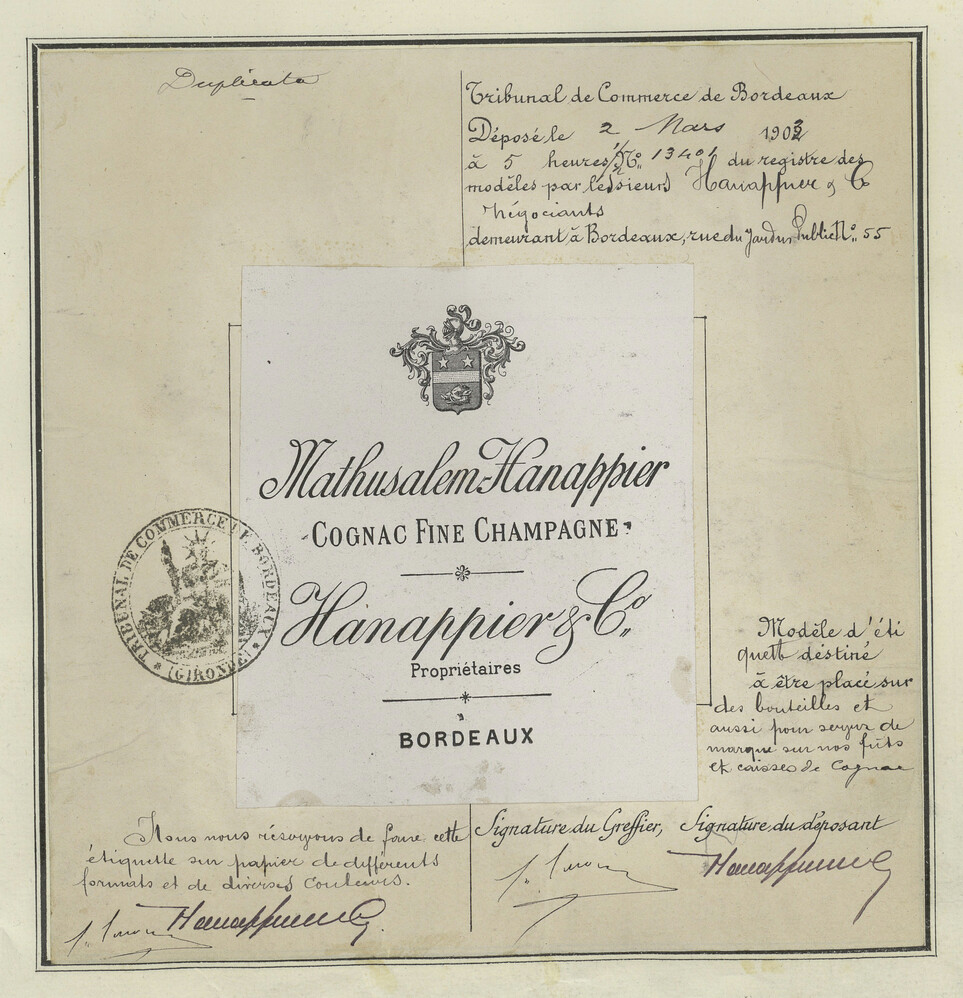 Duplicata
Tribunal de Commerce de Bordeaux
Déposé le 2 Mars 1903
à 5 heures 1/2 No. 13401 du registre des
modèles par les sieurs Hanappier & Co
négociants
demeurant à Bordeaux, rue du Jardin Public No. 55
Mathusalem-Hanappier
COGNAC FINE CHAMPAGNE
Hanappier & Co.
Propriétaires
à
BORDEAUX
TRIBUNAL DE COMMERCE DE BORDEAUX
(GIRONDE)
Modèle d'éti
quette destiné
à être placé sur
des bouteilles et
aussi pour servir de
marque sur nos fûts
et caisses de Cognac
Nous nous réservons de faire cette
étiquette sur papier de différents
formats et de diverses couleurs.
Signature du Greffier, Signature du déposant
Hanappier & Co
Hanappier & Co